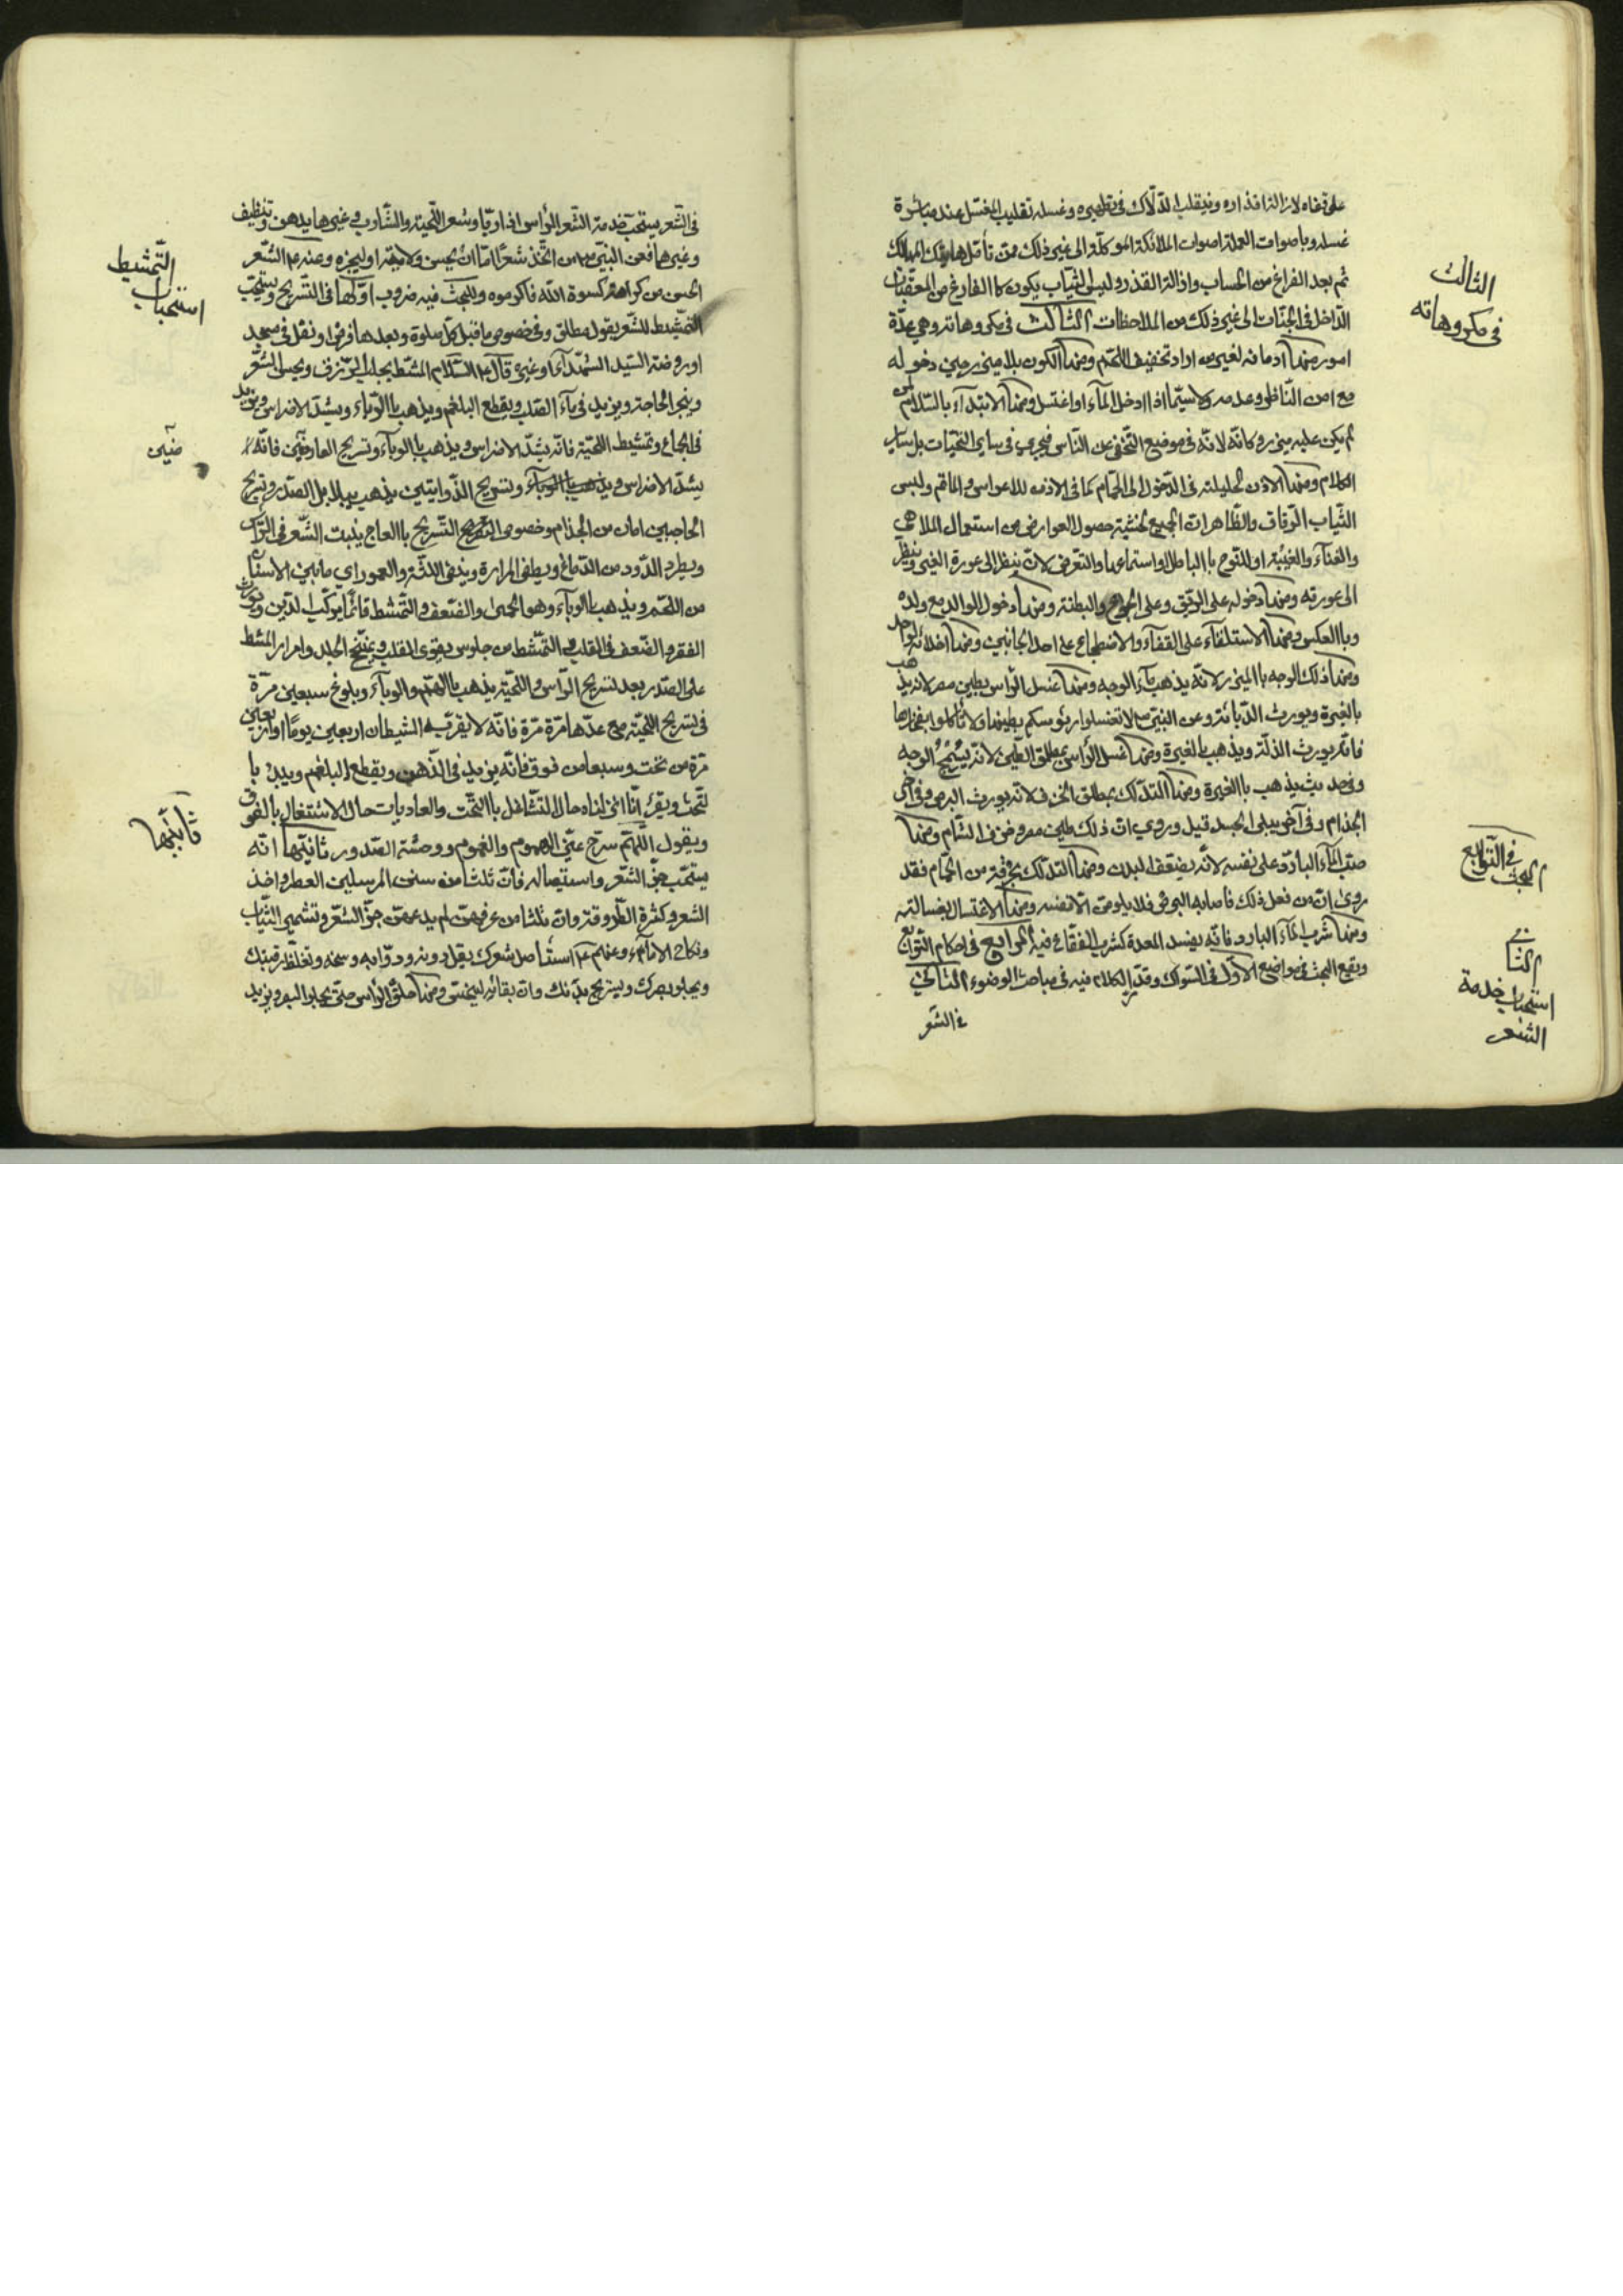 على قفاه لازالة اقذاره وبتقلب الدلّاك فى تطهيره وغسله تقليب المغسّل عند مباشرة
غسله وباصوات العملة اصوات الملائكة الموكلة الى غير ذلك ممن تأمل هاتيك المسالك
ثم بعد الفراغ من الحساب وازالة القذر ولبس الثياب يكون كالفارغ من العقبات
الداخل فى الجنّات الى غير ذلك من الملاحظات الثالث فى مكروهاته وهي عدّة
امور منها ادمانه لغير من اراد تخفيف اللحم ومنها الكون بلا ميزر حين دخوله
مع امن النّاظر وعدمه ولا سيّما اذا دخل المآء او اغتسل ومنها الابتدآء بالسّلام لمن
لم يكن عليه ميزر وكانّه لانّه فى موضع التّخفى عن النّاس فيجرى فى ساير التحيّات بل ساير
الكلام ومنها الاذن للحليلة فى الدّخول الى الحمّام كما فى الاذن للاعراس والماتم ولبس
الثّياب الرّقاق والظّاهر ان الجميع لخشية حصول العوارض من استعمال الملاهى
والغنآء والغيبة او للنّوح باالباطل او استماعها والتعرض لان ينظر الى عورة الغير وينظر
الى عورته ومنها دخوله على الريق وعلى الجوع والبطنة ومنها دخول الوالد مع ولده
وباالعكس ومنها الاستلقآء على القفآء والاضطجاع على احد الجانبين ومنها
ومنها دلك الوجه باالميزر لانّه يذهب بمآء الوجه ومنها غسل الرأس بطين مصر لانه يذهب
بالغيرة ويورث الدّياثة وعن النبيّ ص لا تغسلوا رؤسكم بطينها ولا تأكلوا بفخارها
فانّه يورث الذلّة ويذهب بالغيرة ومنها غسل الرأس بمطلق الطّين لانّه يسمّج الوجه
وفى حديث يذهب باالغيرة ومنها التدلّك بمطلق الخزف لانّه يورث البرص وفى اخر
الجذام وفى آخر يبلى الجسد قيل وروي ان ذلك طين مصر وخزف الشّام ومنها
صبّ المآء البارد على نفسه لانّه يضعف البدن ومنها التدلّك بخرقة من الحمّام فقد
روى ان من فعل ذلك فاصابه البرص فلا يلومن الّا نفسه ومنها الاغتسال بغسالته
ومنها شرب المآء البارد فانّه يفسد المعدة كشرب الفقّاع فيه الرابع فى احكام التّوابع
ويقع البحث فى مواضع الاوّل فى السّواك وقد مرّ الكلام فيه فى مباحث الوضوء الثّانى
فى الشّعر
الثالث
فى مكروهاته
فى التّوابع
البحث
الثانى
استحباب خدمة
الشعر
فى الشّعر يستحبّ خدمة الشّعر للرأس اذا ربّا وشعر اللّحية والشّارب وغيرها بدهن وتنظيف
وغيرهما فعن النبيّ ص من اتّخذ شعرًا امّا ان يحسن ولايته او ليجزه وعنه ع الشّعر
الحسن من كرامة كسوة اللّه فاكرموه وللبحث فيه ضروب اوّلها فى التّسريح ويستحبّ
التمشيط للشّعر بقول مطلق وفى خصوص ما قبل كلّ صلوة وبعدها فرض او نفل فى مسجد
او روضة السّيد الشّهدآء او غيره قال ع السّلام المشط يجلب الرّزق ويحسن الشّعر
وينجز الحاجة ويزيد فى مآء الصّلب ويقطع البلغم ويذهب باالوبآء ويشدّ الاضراس ويزيد
فى الجماع وتمشيط اللّحية فانّه يشدّ الاضراس ويذهب باالوبآء وتسريح العارضين فانّه
يشدّ الاضراس ويذهب باالوبآء وتسريح الذّوابتين يذهب ببلابل الصّدر وتسريح
الحاجبين امان من الجذام وخصوص التّسريح باالعاج ينبت الشّعر فى الرّأس
ويطرد الدّود من الدّماغ ويطفى المرارة وينقى اللّثة والعمور اي ما بين الاسنان
من اللّحم ويذهب باالوبآء وهو الحمّى والضّعف والتّمشّط قائمًا يركب الدّين ويورث
الفقر والضّعف فى القلب والتمشّط من جلوس يقوى القلب ويمخّخ الجلد وامرار المشط
على الصّدر بعد تسريح الرّأس واللّحية يذهب باالهمّ والوبآء وبلوغ سبعين مرّة
فى تسريح اللّحية مع عدّها مرّة مرّة فانّه لا يقربه الشيطان اربعين يومًا او اربعين
مرّة من تحت وسبعا من فوق فانّه يزيد فى الذّهن ويقطع البلغم ويبدء با
لتّحت ويقرء انّا انزلناه حال التّشاغل باالتّحت والعاديات حال الاشتغال بالفوق
ويقول اللّهمّ سرّح عنّى الهموم والغموم ووحشة الصّدور ثانيتها انّه
يستحبّ جزّ الشّعر واستيصاله فانّ ثلثا من سنن المرسلين العطر واخذ
الشعر وكثرة الطّروقة وان ثلثا من عرفهنّ لم يدعهنّ جزّ الشّعر وتشمير الثّياب
ونكاح الامآء وعنهم ع استأصل شعرك يقل درنه ودوابه ووسخه وتغلظ رقبتك
ويجلو بصرك ويستريح بدنك وان بقائه لينجس ومنها حلق الرّأس حتى يجلو البصر ويزيد
التّمشيط
استحباب
ضين
ثانيتها